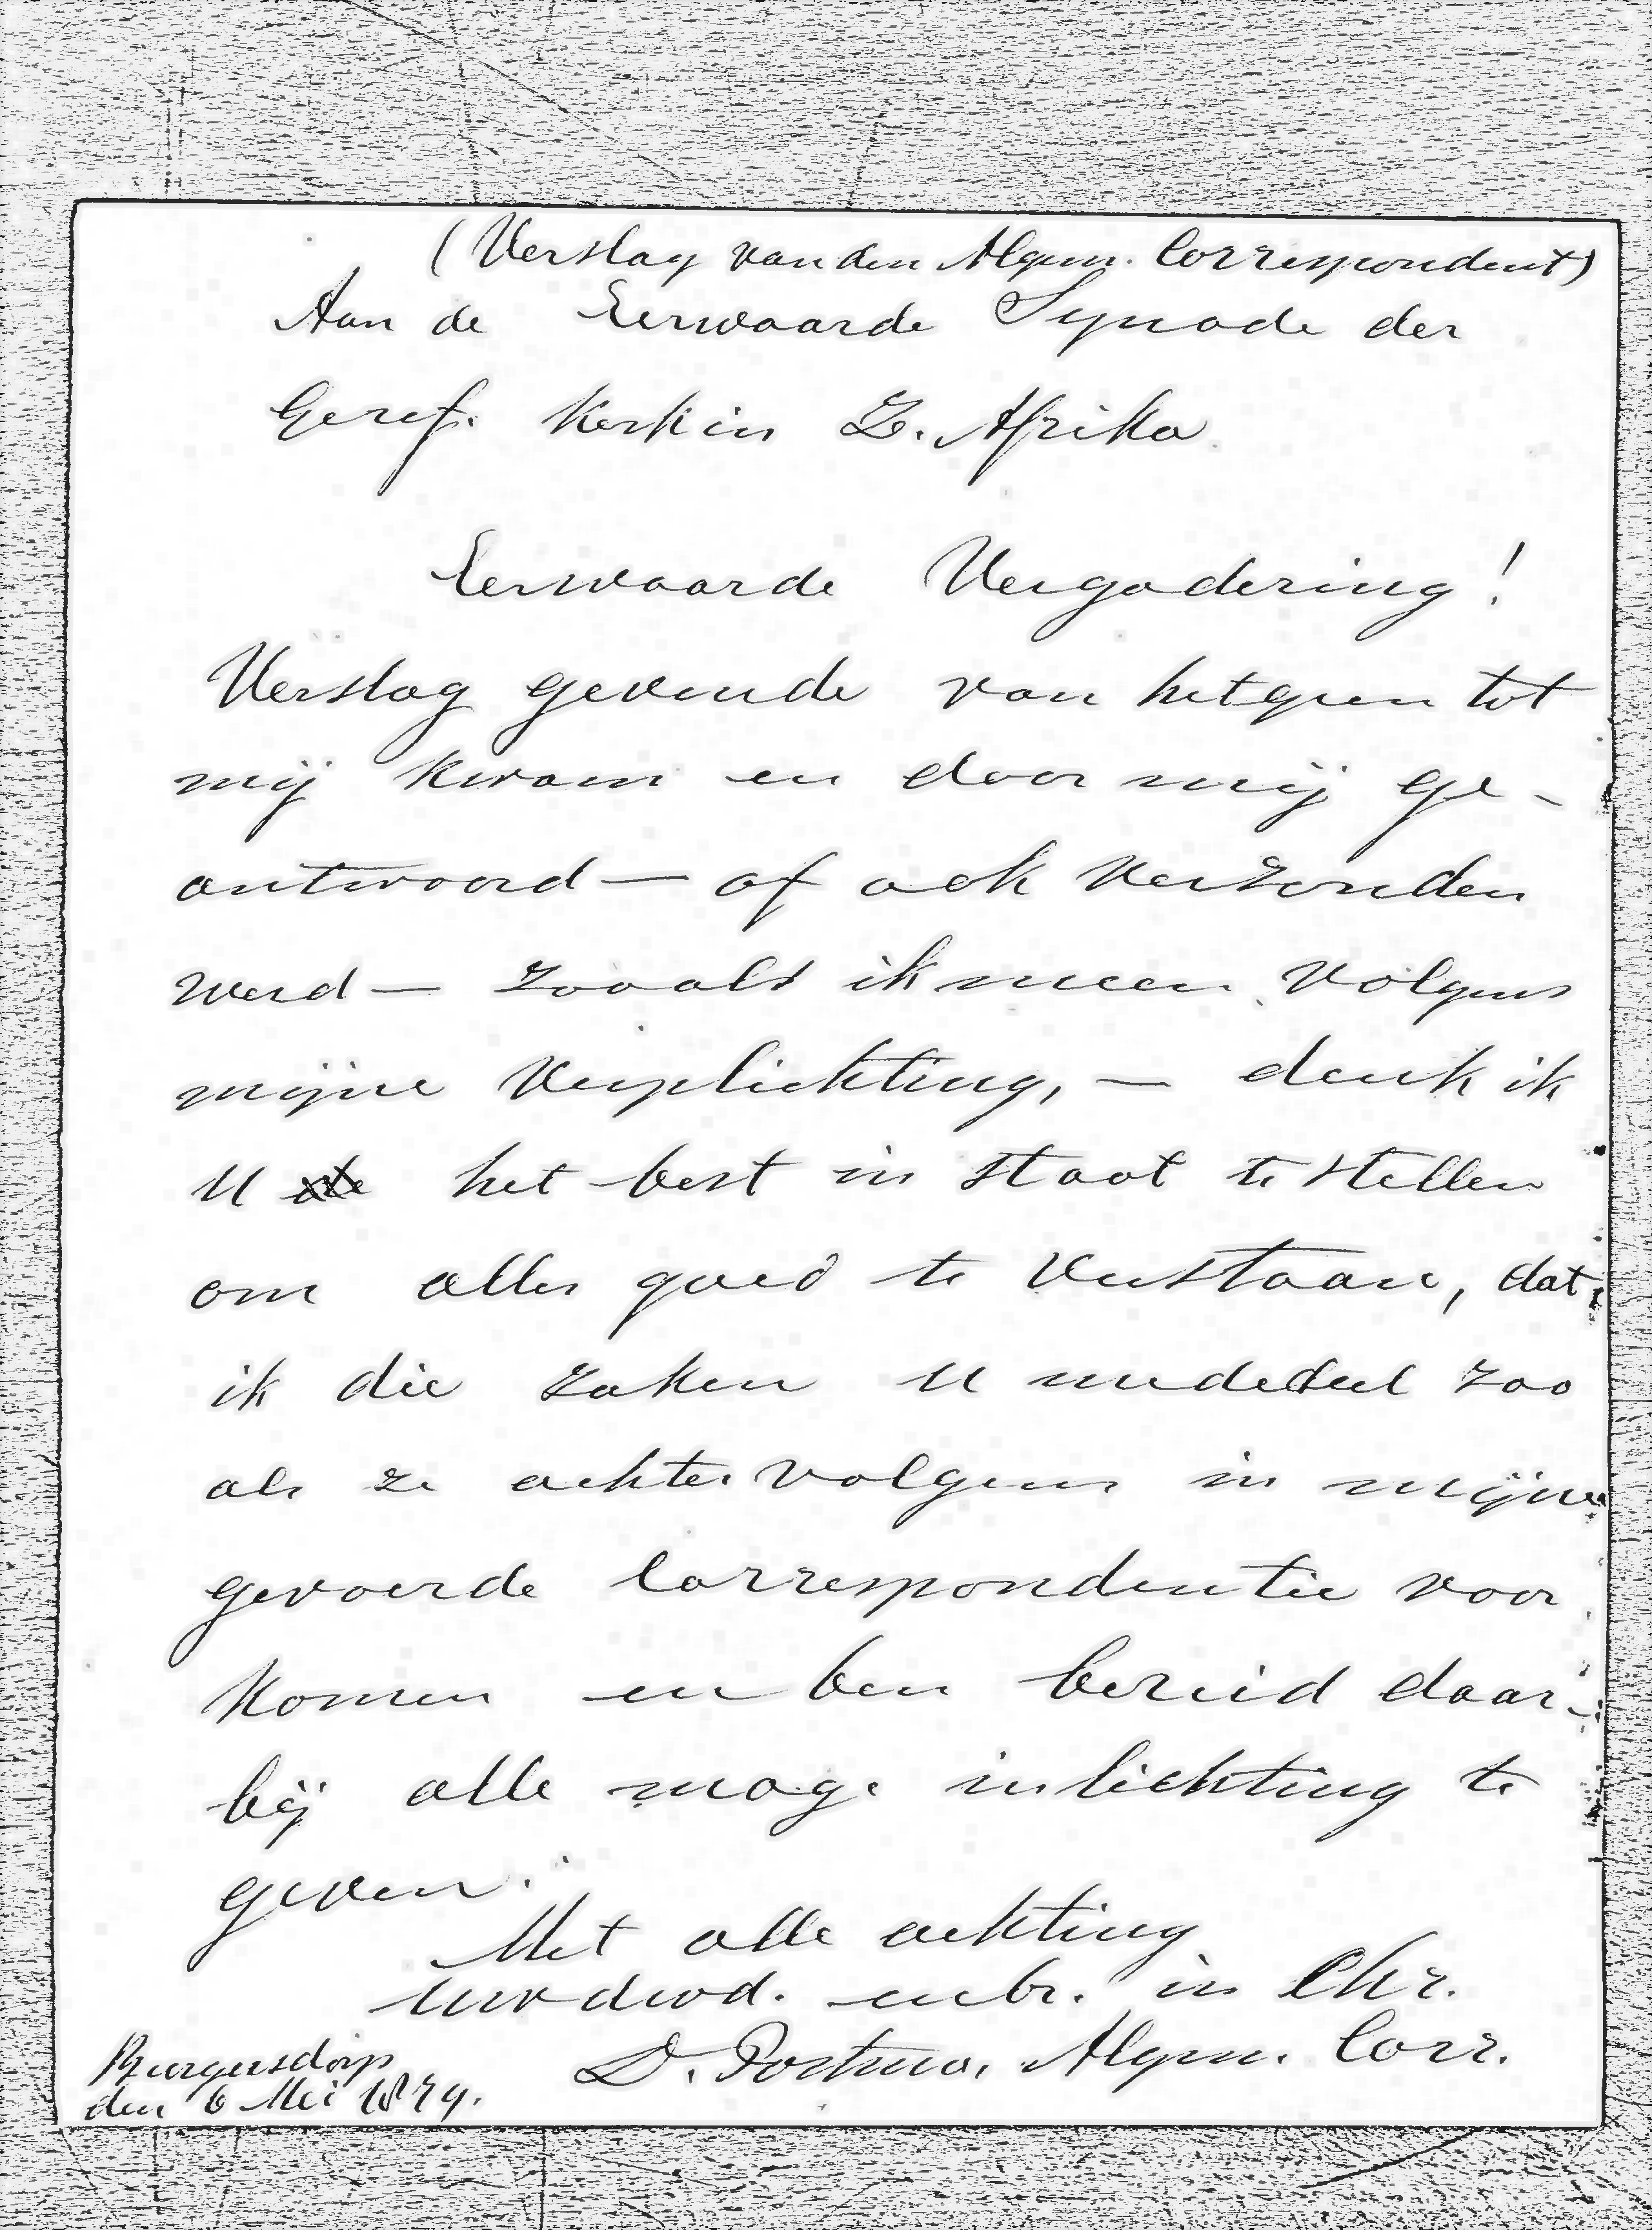 (Verslag van den Algem. Correspondent)
Aan de Eerwaarde Synode der
Geref. Kerk in Z. Afrika
Eerwaarde Vergadering!
Verslag gevende van hetgeen tot
mij kwam en door mij ge-
antwoord — of ook verzonden
werd — zooals ik meen volgens
mijne verplichting, — denk ik
U het best in staat te stellen
om alles goed te verstaan, dat
ik die zaken U mededeel zoo
als ze achtervolgens in mijne
gevoerde Correspondentie voor
komen en ben bereid daar-
bij alle mog. inlichting te
geven.
Met alle achting
Uw dwd. en br. in Chr.
D. Postma, Algem. Corr.
Burgersdorp
den 6 Mei 1879.